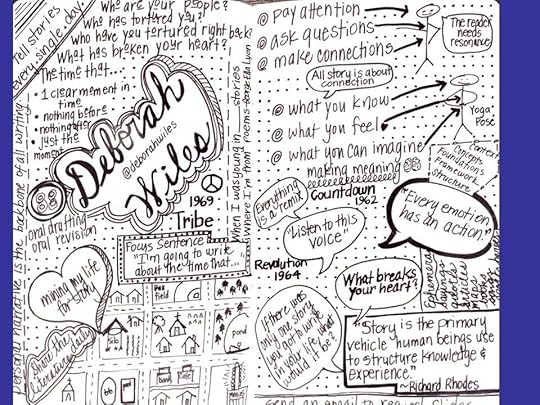 Tell stories
every single day.
Who are your people?
Who has tortured you?
Who have you tortured right back?
What has broken your heart?
The time that...
1 clear moment in
time
nothing before
nothing after
just the
moment
Deborah
Wiles
@deborahwiles
1969
Tribe
oral drafting
oral revision
Focus Sentence
"I'm going to write
about the time that...
mining my life
for story
Share the
literature daily
personal narrative is the backbone of all writing
When I was young in... stories
Where I'm from Poems - George Ella Lyon
field
pond
pay attention
ask questions
make connections
The reader
needs
resonance
All story is about
connection
what you know
what you feel
what you can imagine
making meaning
Yoga
Pose
Context
Concepts
Foundations
Framework
Structure
Everything
is a remix
Countdown
1962
"Listen to this
voice"
Revolution
1964
"Every emotion
has an action"
What breaks
your heart?
Ephemera
sayings
quotes
articles
maps
books
songs
If there was
only one story
you got to write
in your life, what
would it be?
"Story is the primary
vehicle human beings use
to structure knowledge &
experience."
~Richard Rhodes
Send an email to